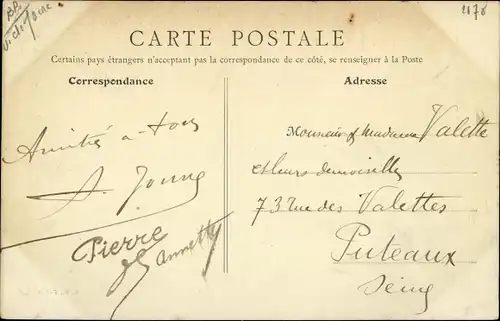 4178
CARTE POSTALE
Certains pays étrangers n'acceptant pas la correspondance de ce côté, se renseigner à la Poste
Correspondance
Amitiés a tous
Pierre
Annette
Adresse
Monsieur & Madame Valette
et leurs demoiselles
73 rue des Valettes
Puteaux
Seine